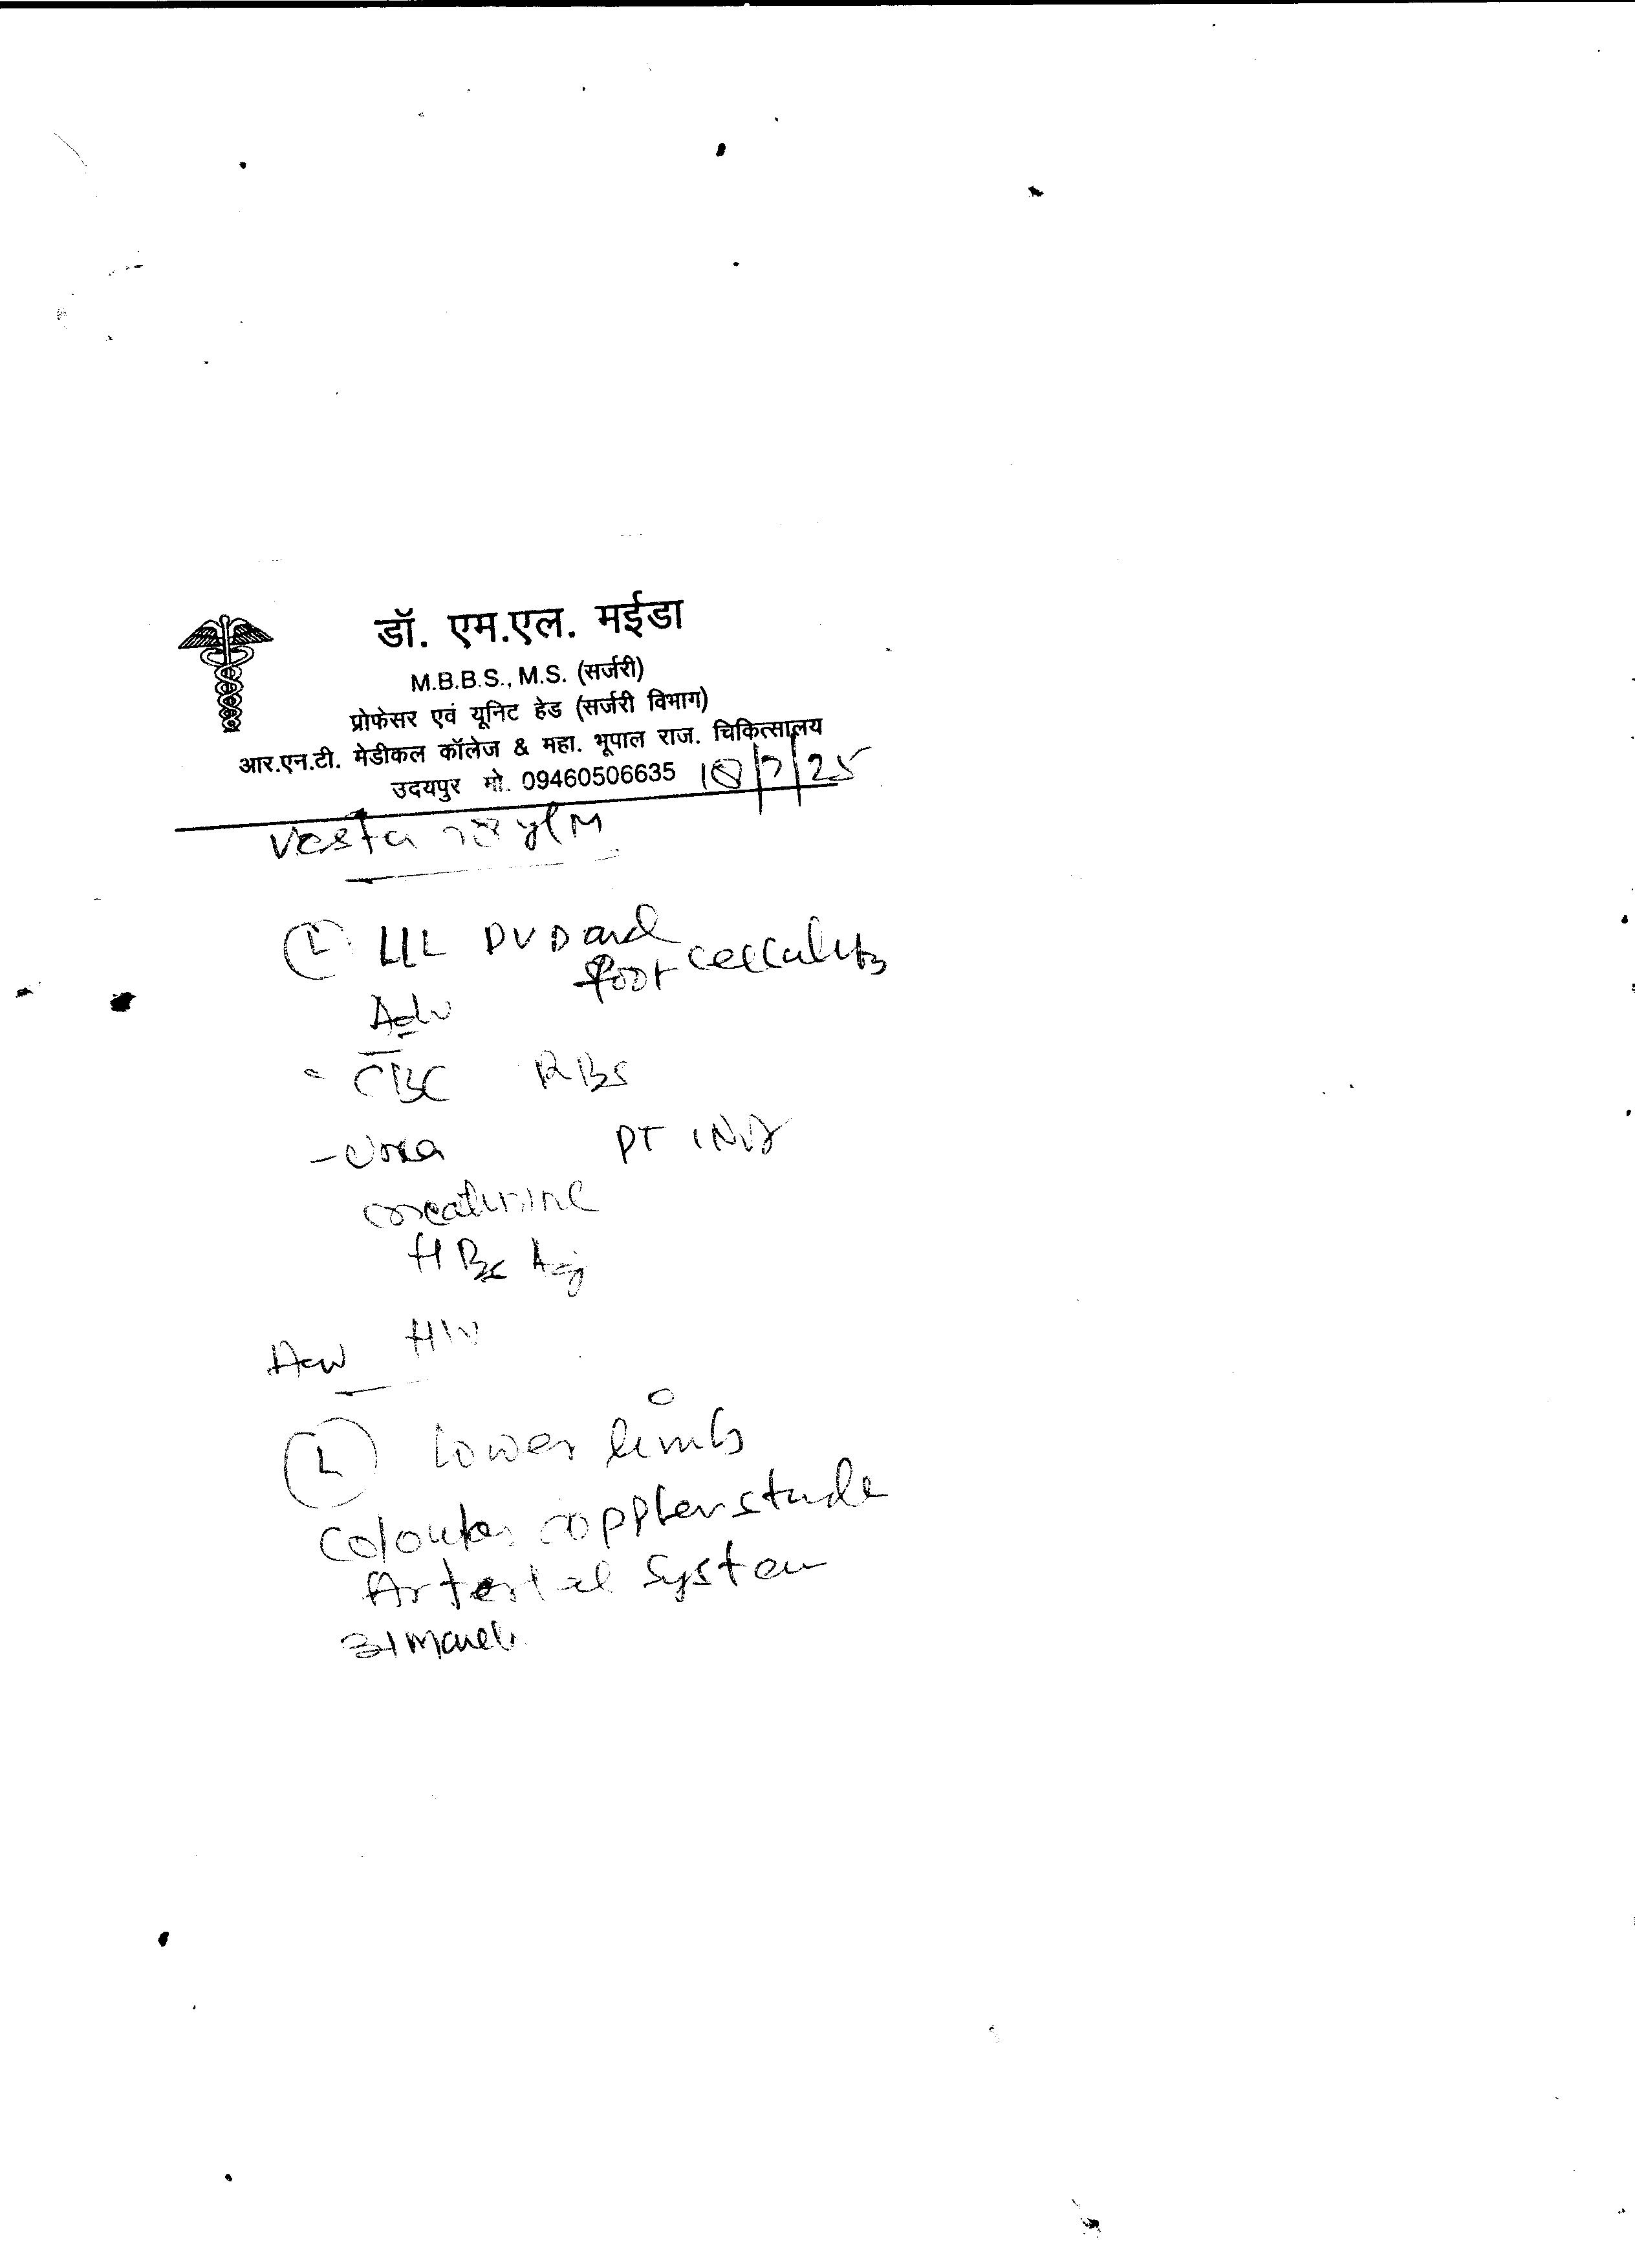 डॉ. एम.एल. मईडा
M.B.B.S., M.S. (सर्जरी)
प्रोफेसर एवं यूनिट हेड (सर्जरी विभाग)
आर.एन.टी. मेडीकल कॉलेज & महा. भूपाल राज. चिकित्सालय
उदयपुर मो. 09460506635 18/7/25
Vesta
(L) LIL PVD and
foot cellulitis
Adv
- CBC RBS
- Urea PT INR
creatinine
HBs Ag
HIV
Adv
(L) lower limb
Colour doppler
Arterial system